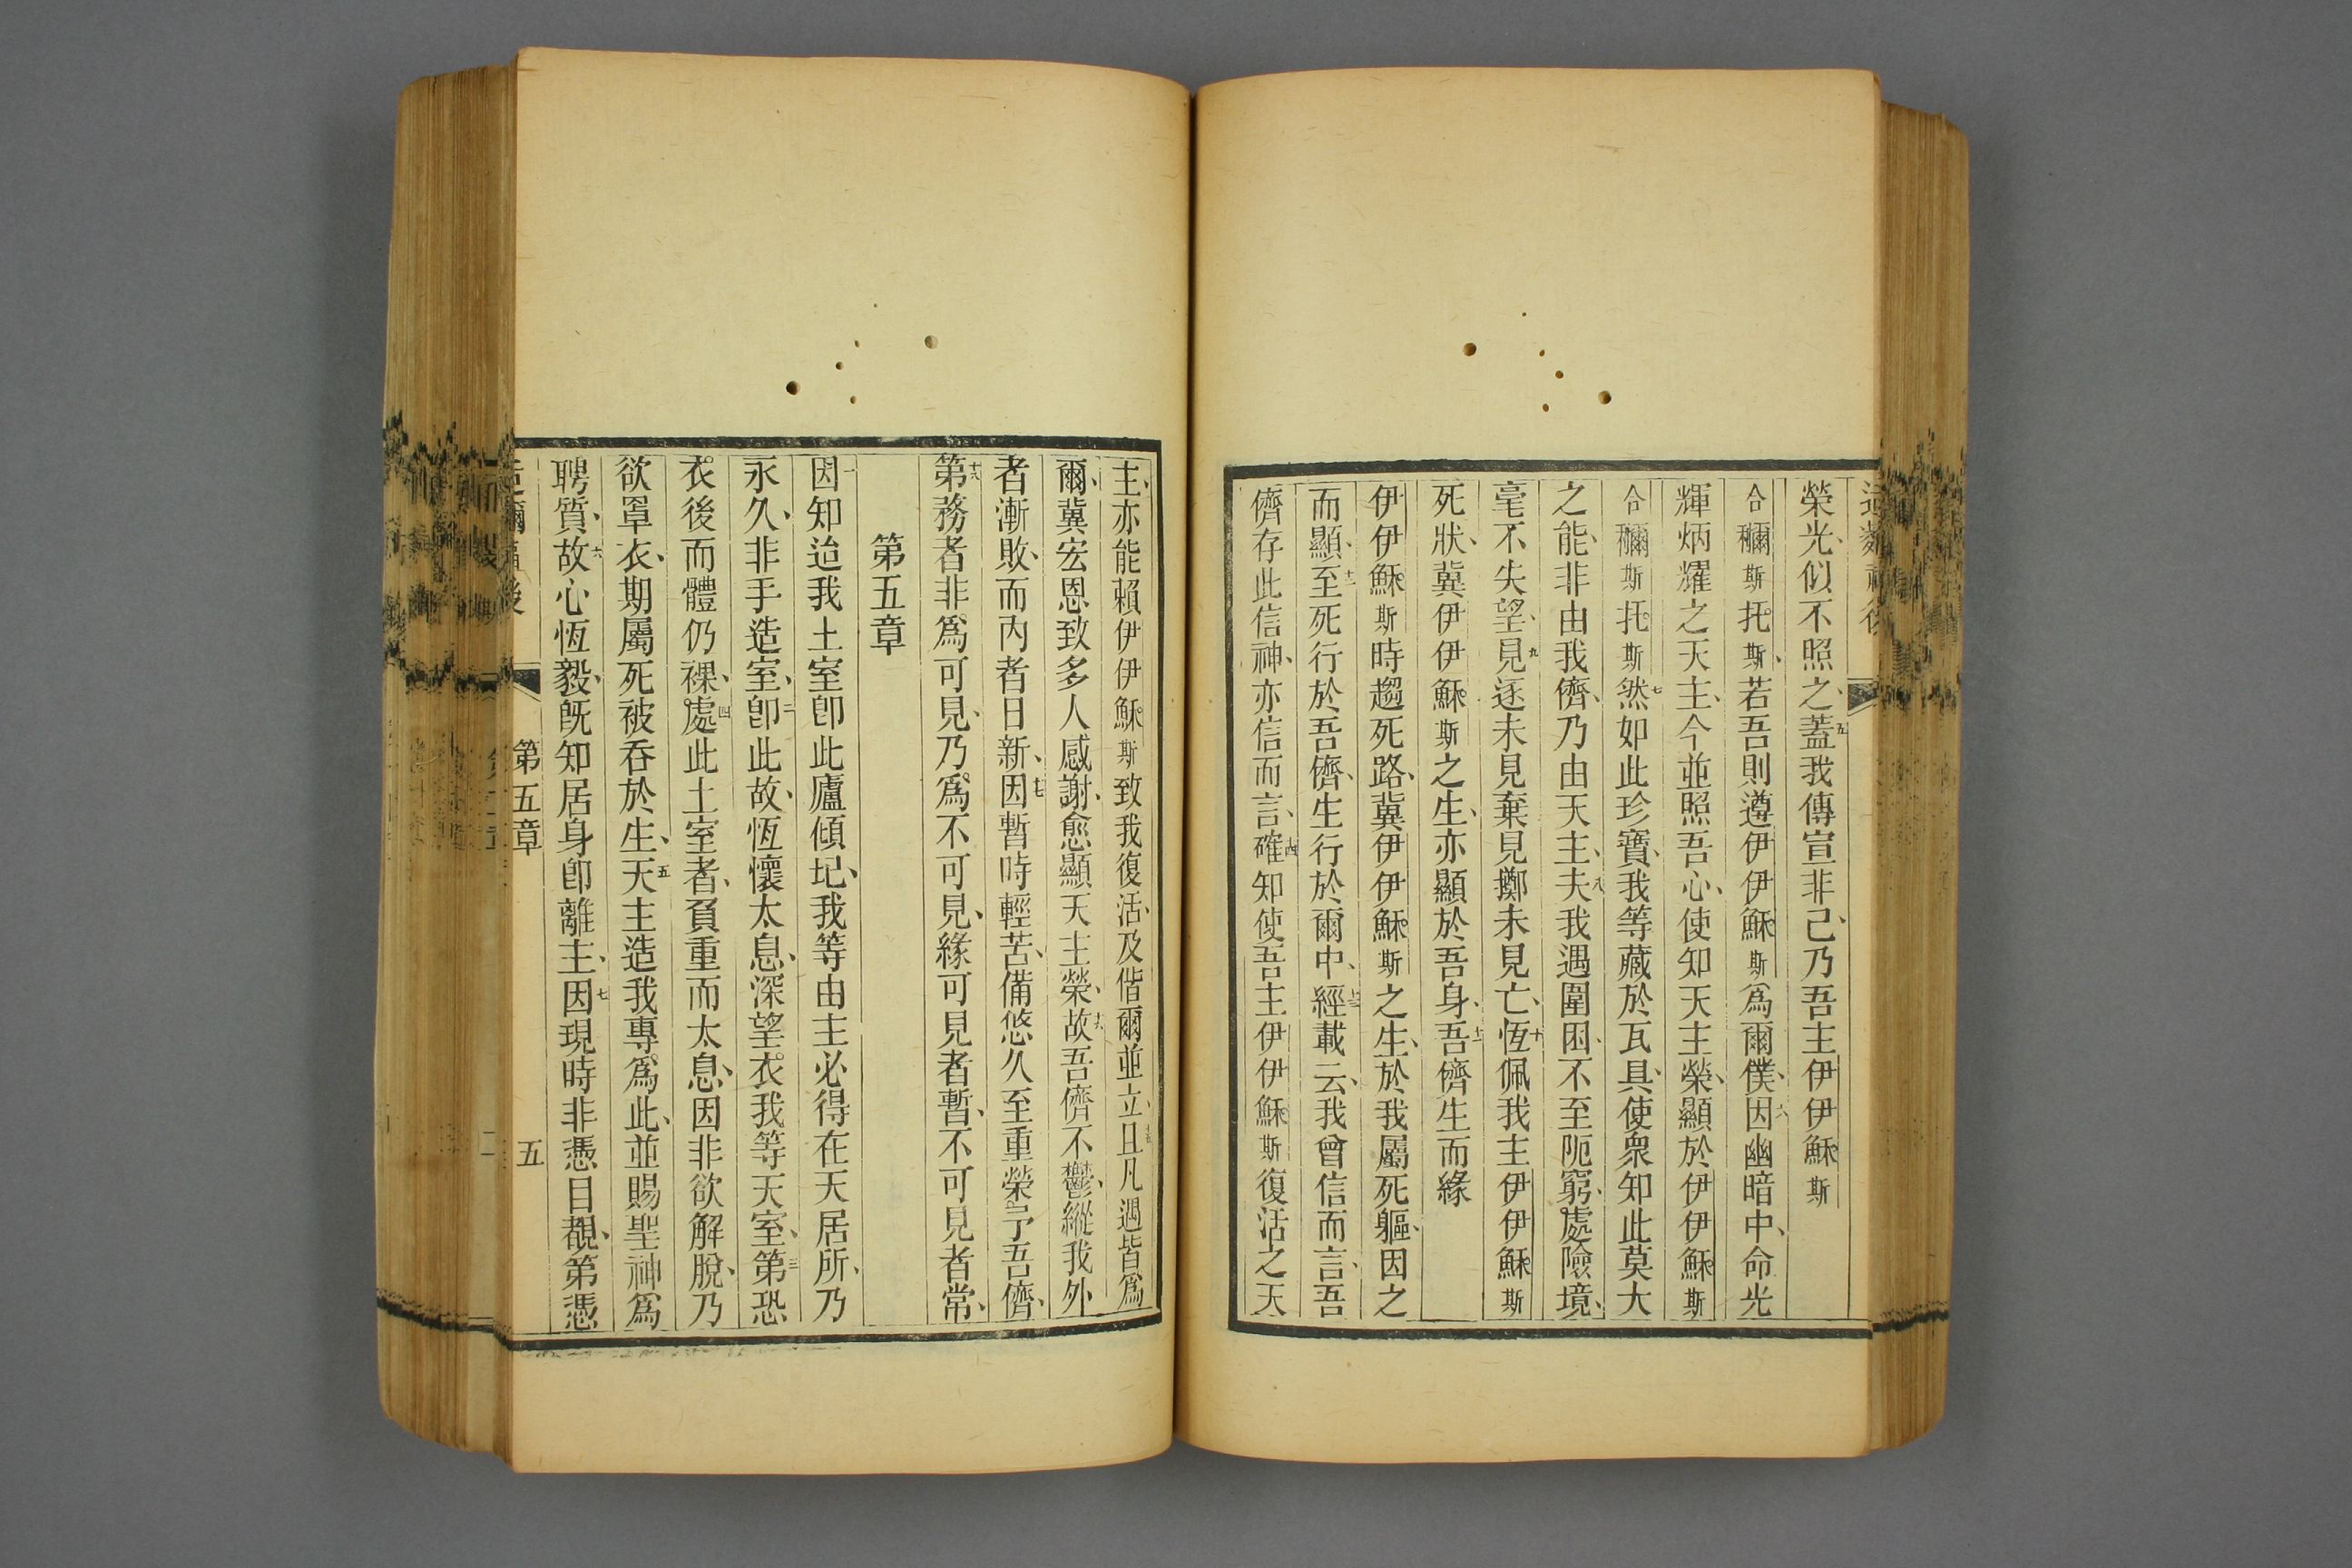 榮光、似不照之、五蓋我傳宣非己、乃吾主伊伊穌斯
合穪斯托斯、若吾則遵伊伊穌斯爲爾僕、六因幽暗中、命光
輝炳耀之天主、今並照吾心、使知天主榮、顯於伊伊穌斯
合穪斯托斯七然如此珍寶、我等藏於瓦具、使衆知此莫大
之能、非由我儕、乃由天主、八夫我遇圍困、不至阨窮、處險境、
毫不失望、九見逐未見棄見擲未見亡、十恆佩我主伊伊穌斯
死狀、冀伊伊穌斯之生、亦顯於吾身、十一吾儕生而緣
伊伊穌斯時趨死路、冀伊伊穌斯之生、於我屬死軀、因之
而顯、十二至死行於吾儕、生行於爾中、十三經載云、我曾信而言、吾
儕存此信神、亦信而言、十四確知使吾主伊伊穌斯復活之天
主、亦能賴伊伊穌斯致我復活、及偕爾並立、十五且凡遇皆爲
爾、冀宏恩致多人感謝、愈顯天主榮、十六故吾儕不鬱、縱我外
者漸敗、而內者日新、十七因暫時輕苦、備悠久至重榮予吾儕、
十八第務者非爲可見、乃爲不可見、緣可見者暫、不可見者常、
第五章
一因知迨我土室卽此廬傾圮、我等由主必得在天居所、乃
永久、非手造室、二卽此故、恆懷太息、深望衣我等天室、三第恐
衣後而體仍裸、四處此土室者、負重而太息、因非欲解脫、乃
欲罩衣、期屬死被吞於生、五天主造我專爲此、並賜聖神爲
聘質、六故心恆毅、旣知居身卽離主、七因現時非憑目覩、第憑
第五章 五